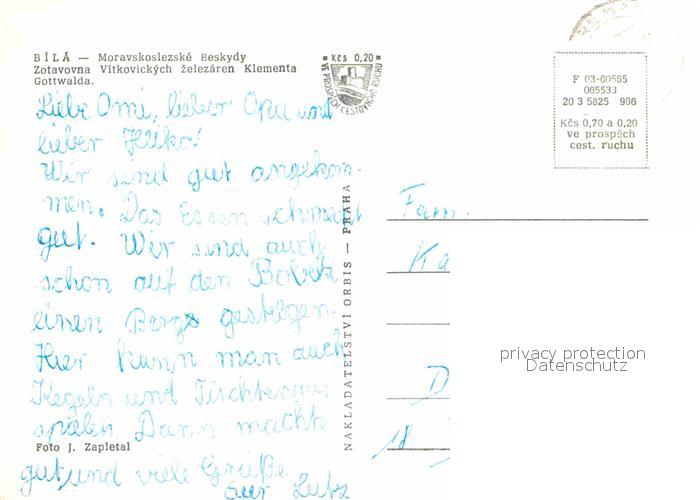 BÍLÁ — Moravskoslezské Beskydy
Zotavovna Vítkovických železáren Klementa
Gottwalda.
Kčs 0,20
VE PROSPĚCH CESTOVNÍHO RUCHU
F 03-60565
065533
20 3 5825 986
Kčs 0,70 a 0,20
ve prospěch
cest. ruchu
Liebe Omi, lieber Opa und
lieber Heiko!
Wir sind gut angekom-
men. Das Essen schmeckt
gut. Wir sind auch
schon auf den
einen Berg gestiegen.
Hier kann man auch
Kegeln und Tischtennis
spielen. Dann machts
gut und viele Grüße
euer Lutz
Foto J. Zapletal
NAKLADATELSTVÍ ORBIS — PRAHA
Fam.
Ka
D
18
privacy protection
Datenschutz